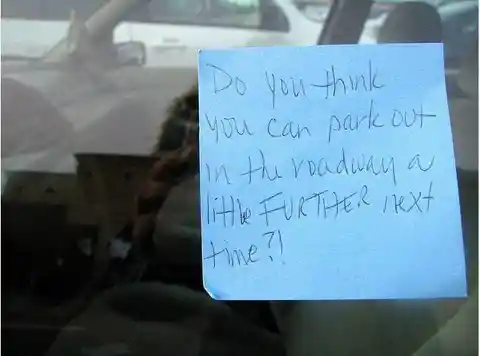 Do you think
you can park out
in the roadway a
little FURTHER next
time?!